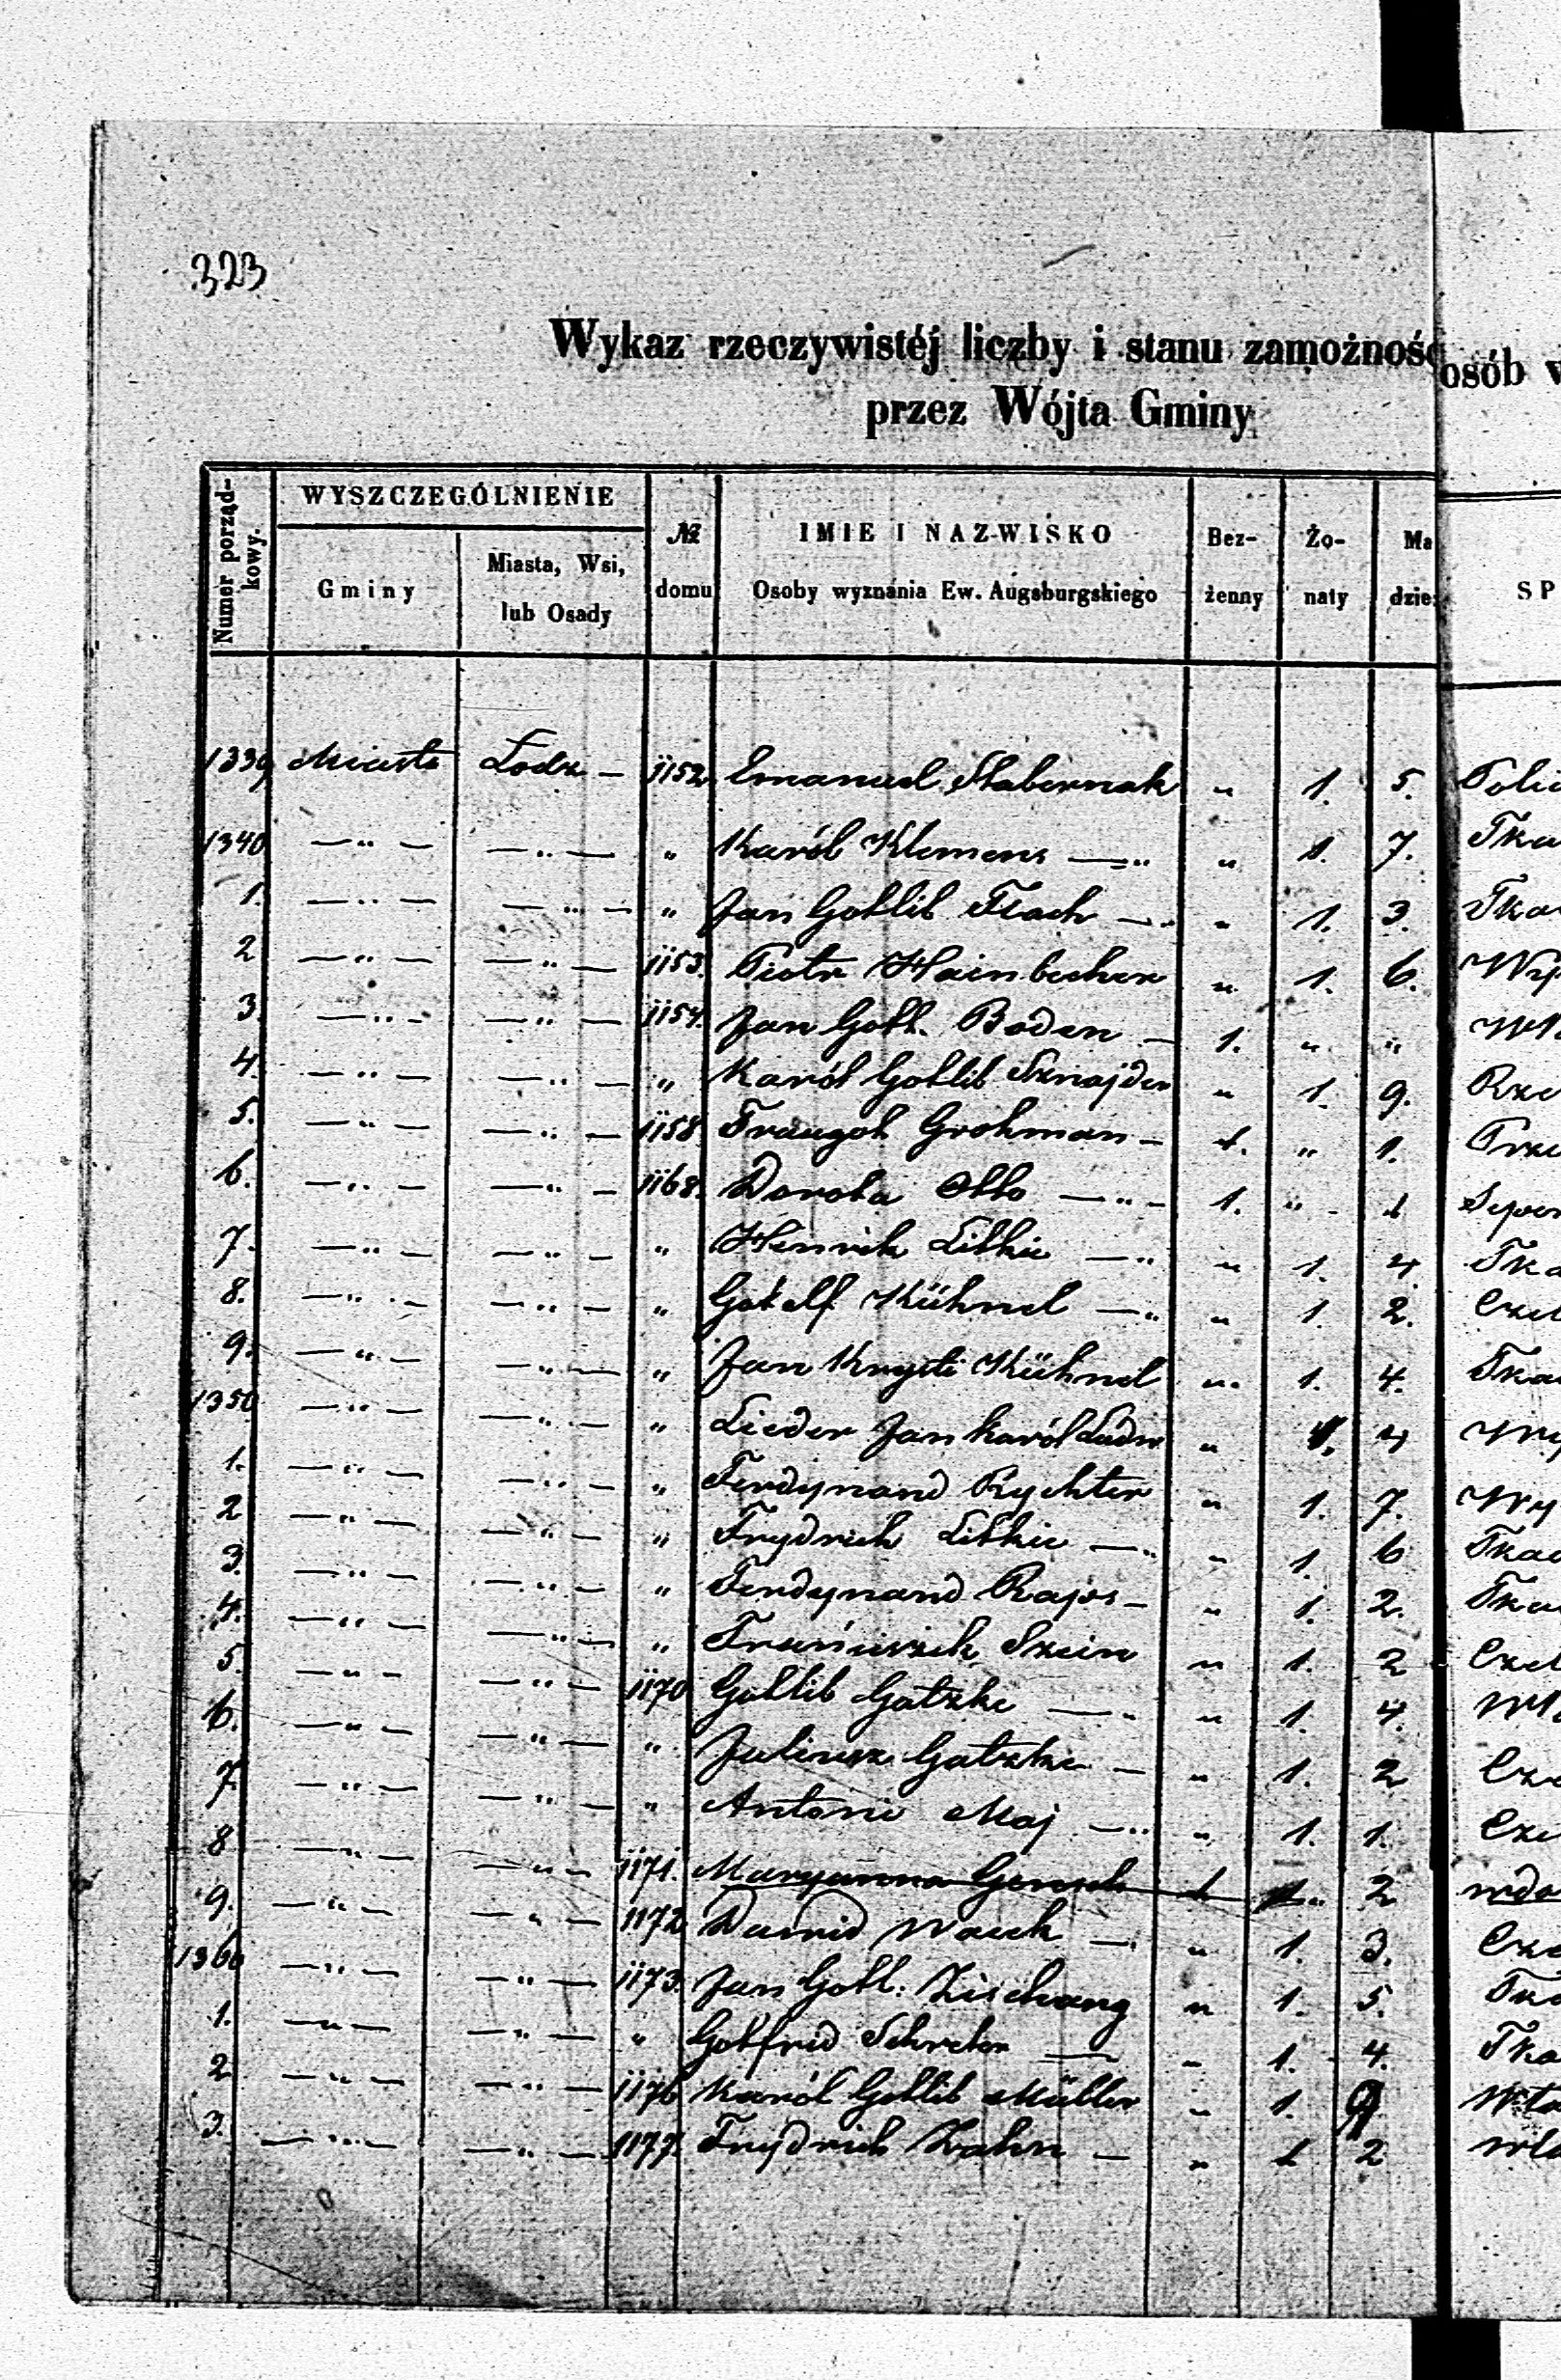 323
Wykaz rzeczywistéj liczby i stanu zamożnoś osób
przez Wójta Gminy
Numer porządkowy.
WYSZCZEGÓLNIENIE
Gminy
Miasta, Wsi,
lub Osady
№
domu
IMIE I NAZWISKO
Osoby wyznania Ew. Augsburgskiego
Bez-
żenny
Żo-
naty
Ma
dzie
SP
1339 Miasto Łodz — 1152. Emanuel Habernak " 1. 5.
1340 —"— —"— " Karól Klemens —" " 1. 7. Tka
1. —"— —"— " Jan Gottlib Flach —" " 1. 3. Tka
2 —"— —"— 1153. Piotr Hainbecher " 1. 6.
3. —"— —"— 1154. Jan Gottl. Boden — 1. " "
4. —"— —"— " Karól Gottlib Sznajder " 1. 9. Rze
5. —"— —"— 1158 Traugot Grohman — 1. " 1. Prze
6. —"— —"— 1168. Dorota Otto —"— 1. " 1
7. —"— —"— " Henrik Litkie —" " 1. 4. Tka
8. —"— —"— " Gotolf Kühnel —" " 1. 2. Czel
9. —"— —"— " Jan Krysti Kühnel " 1. 4. Tka
1350 —"— —"— " Lieder Jan Karól Ludw " 1. 4
1. —"— —"— " Ferdynand Rychter " 1. 7. Wy
2 —"— —"— " Frydrich Litkie —" " 1. 6 Tka
3. —"— —"— " Ferdynand Rajs — " 1. 2. Tka
4. —"— —"— " Franciszek Szein " 1. 2 Czel
5. —"— —"— 1170 Gottlib Gatzke —" " 1. 4.
6. —"— —"— " Juliusz Gatzke — " 1. 2 Cze
7. —"— —"— " Antoni Maj —" " 1. 1. Cze
8 —"— —"— 1171. Maryanna Gensch 1 " 2 wdo
9. —"— —"— 1172 Dawid Wauk —" " 1. 3. Cze
1360 —"— —"— 1173. Jan Gottl. Zischang " 1. 5. Tka
1. —"— —"— " Gotfrid Schreter — " 1. 4. Tka
2 —"— —"— 1176 Karól Gottlib Müller " 1. 9 Wła
3. —"— —"— 1177. Frydrich Zahn — " 1 2 Wła